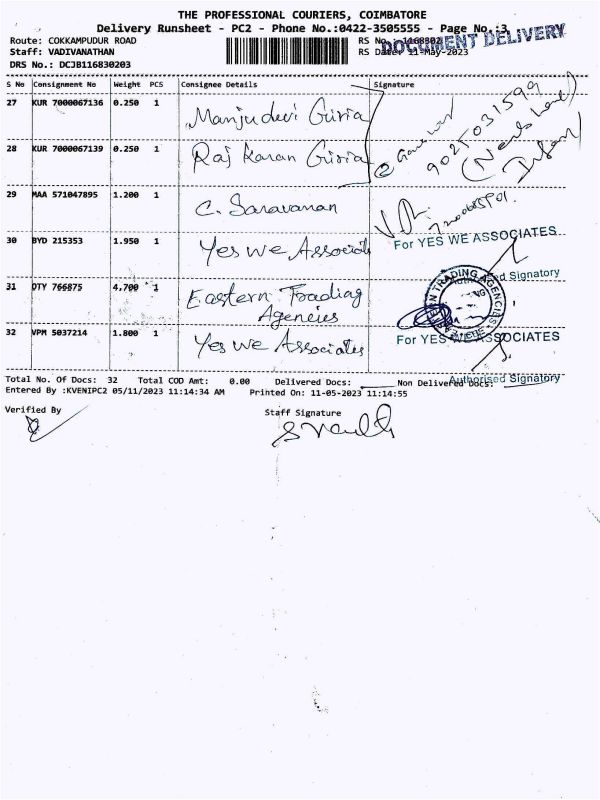 THE PROFESSIONAL COURIERS, COIMBATORE
Delivery Runsheet - PC2 - Phone No.:0422-3505555 - Page No.:3
DOCUMENT DELIVERY
Route: COKKAMPUDUR ROAD RS No.:
Staff: VADIVANATHAN RS Date: 11-May-2023
DRS No.: DCJB116830203
S No Consignment No Weight PCS Consignee Details Signature
27 KUR 7000067136 0.250 1 Manjudevi Giria
28 KUR 7000067139 0.250 1 Raj Karan Giria
9025031599
29 MAA 571047895 1.200 1 C. Saravanan
30 BYD 215353 1.950 1 Yes We Associates
For YES WE ASSOCIATES
Authorised Signatory
31 DTY 766875 4.700 1 Eastern Trading
Agencies
TRADING AGENCIES
32 VPM 5037214 1.800 1 Yes We Associates
For YES WE ASSOCIATES
Authorised Signatory
Total No. Of Docs: 32 Total COD Amt: 0.00 Delivered Docs: Non Delivered Docs:
Entered By :KVENIPC2 05/11/2023 11:14:34 AM Printed On: 11-05-2023 11:14:55
Verified By Staff Signature